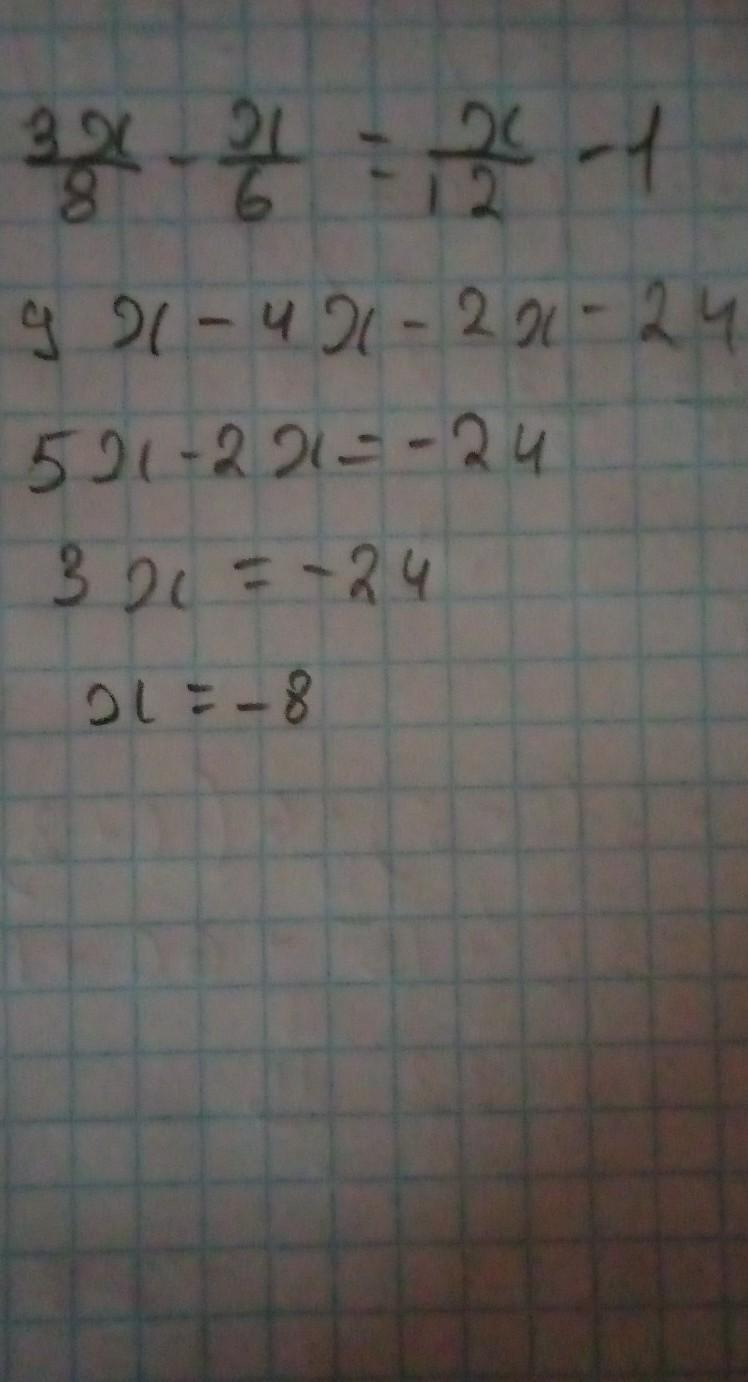 3x/8 - x/6 = x/12 - 1
9x - 4x - 2x - 24
5x - 2x = -24
3x = -24
x = -8